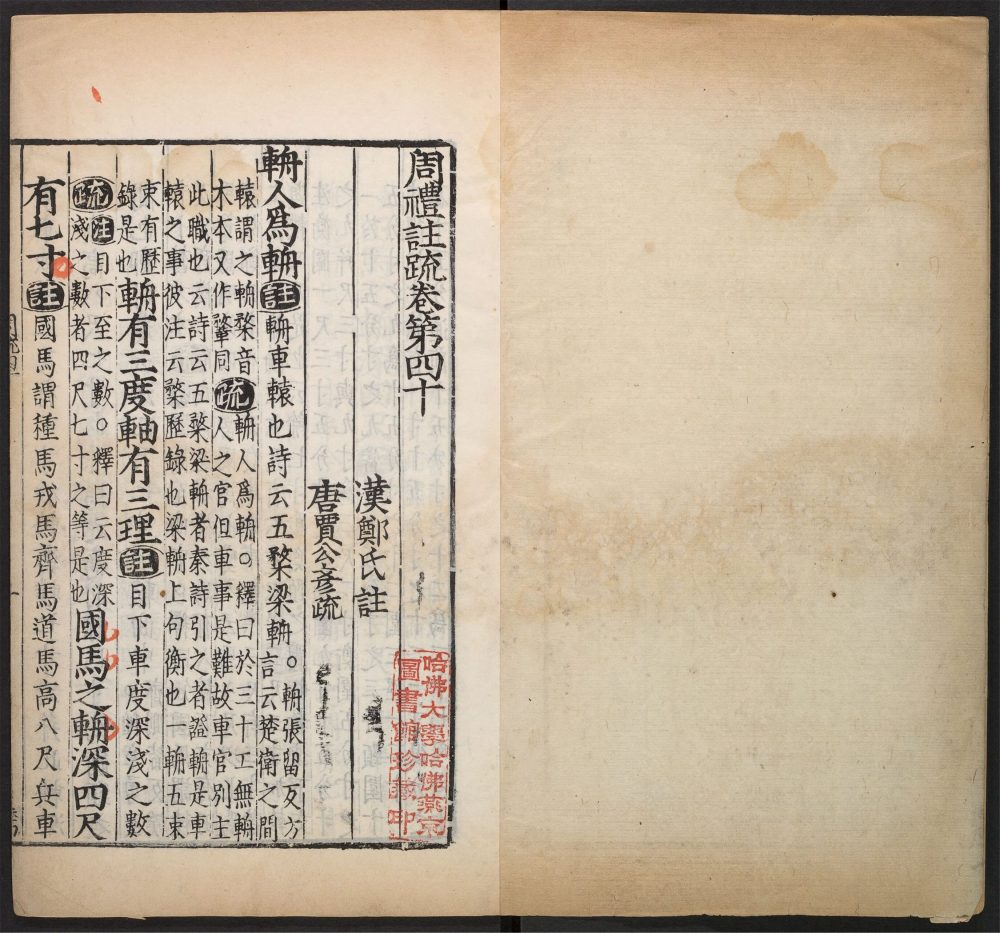 周禮註疏卷第四十
漢鄭氏註
唐賈公彥疏
輈人爲輈註輈車轅也詩云五楘梁輈○輈張留反方
言云楚衛之間
轅謂之輈楘音
木本又作鞪同疏輈人爲輈○釋曰於三十工無輈
人之官但車事是難故車官别主
此職也云詩云五楘梁輈者秦詩引之者證輈是車
轅之事彼注云楘歷錄也梁輈上句衡也一輈五束
束有歷
錄是也輈有三度軸有三理註目下車度深淺之數
疏注目下至之數○釋曰云度深
淺之數者四尺七寸之等是也國馬之輈深四尺
有七寸註國馬謂種馬戎馬齊馬道馬高八尺兵車
哈佛大學哈佛燕京
圖書館珍藏印